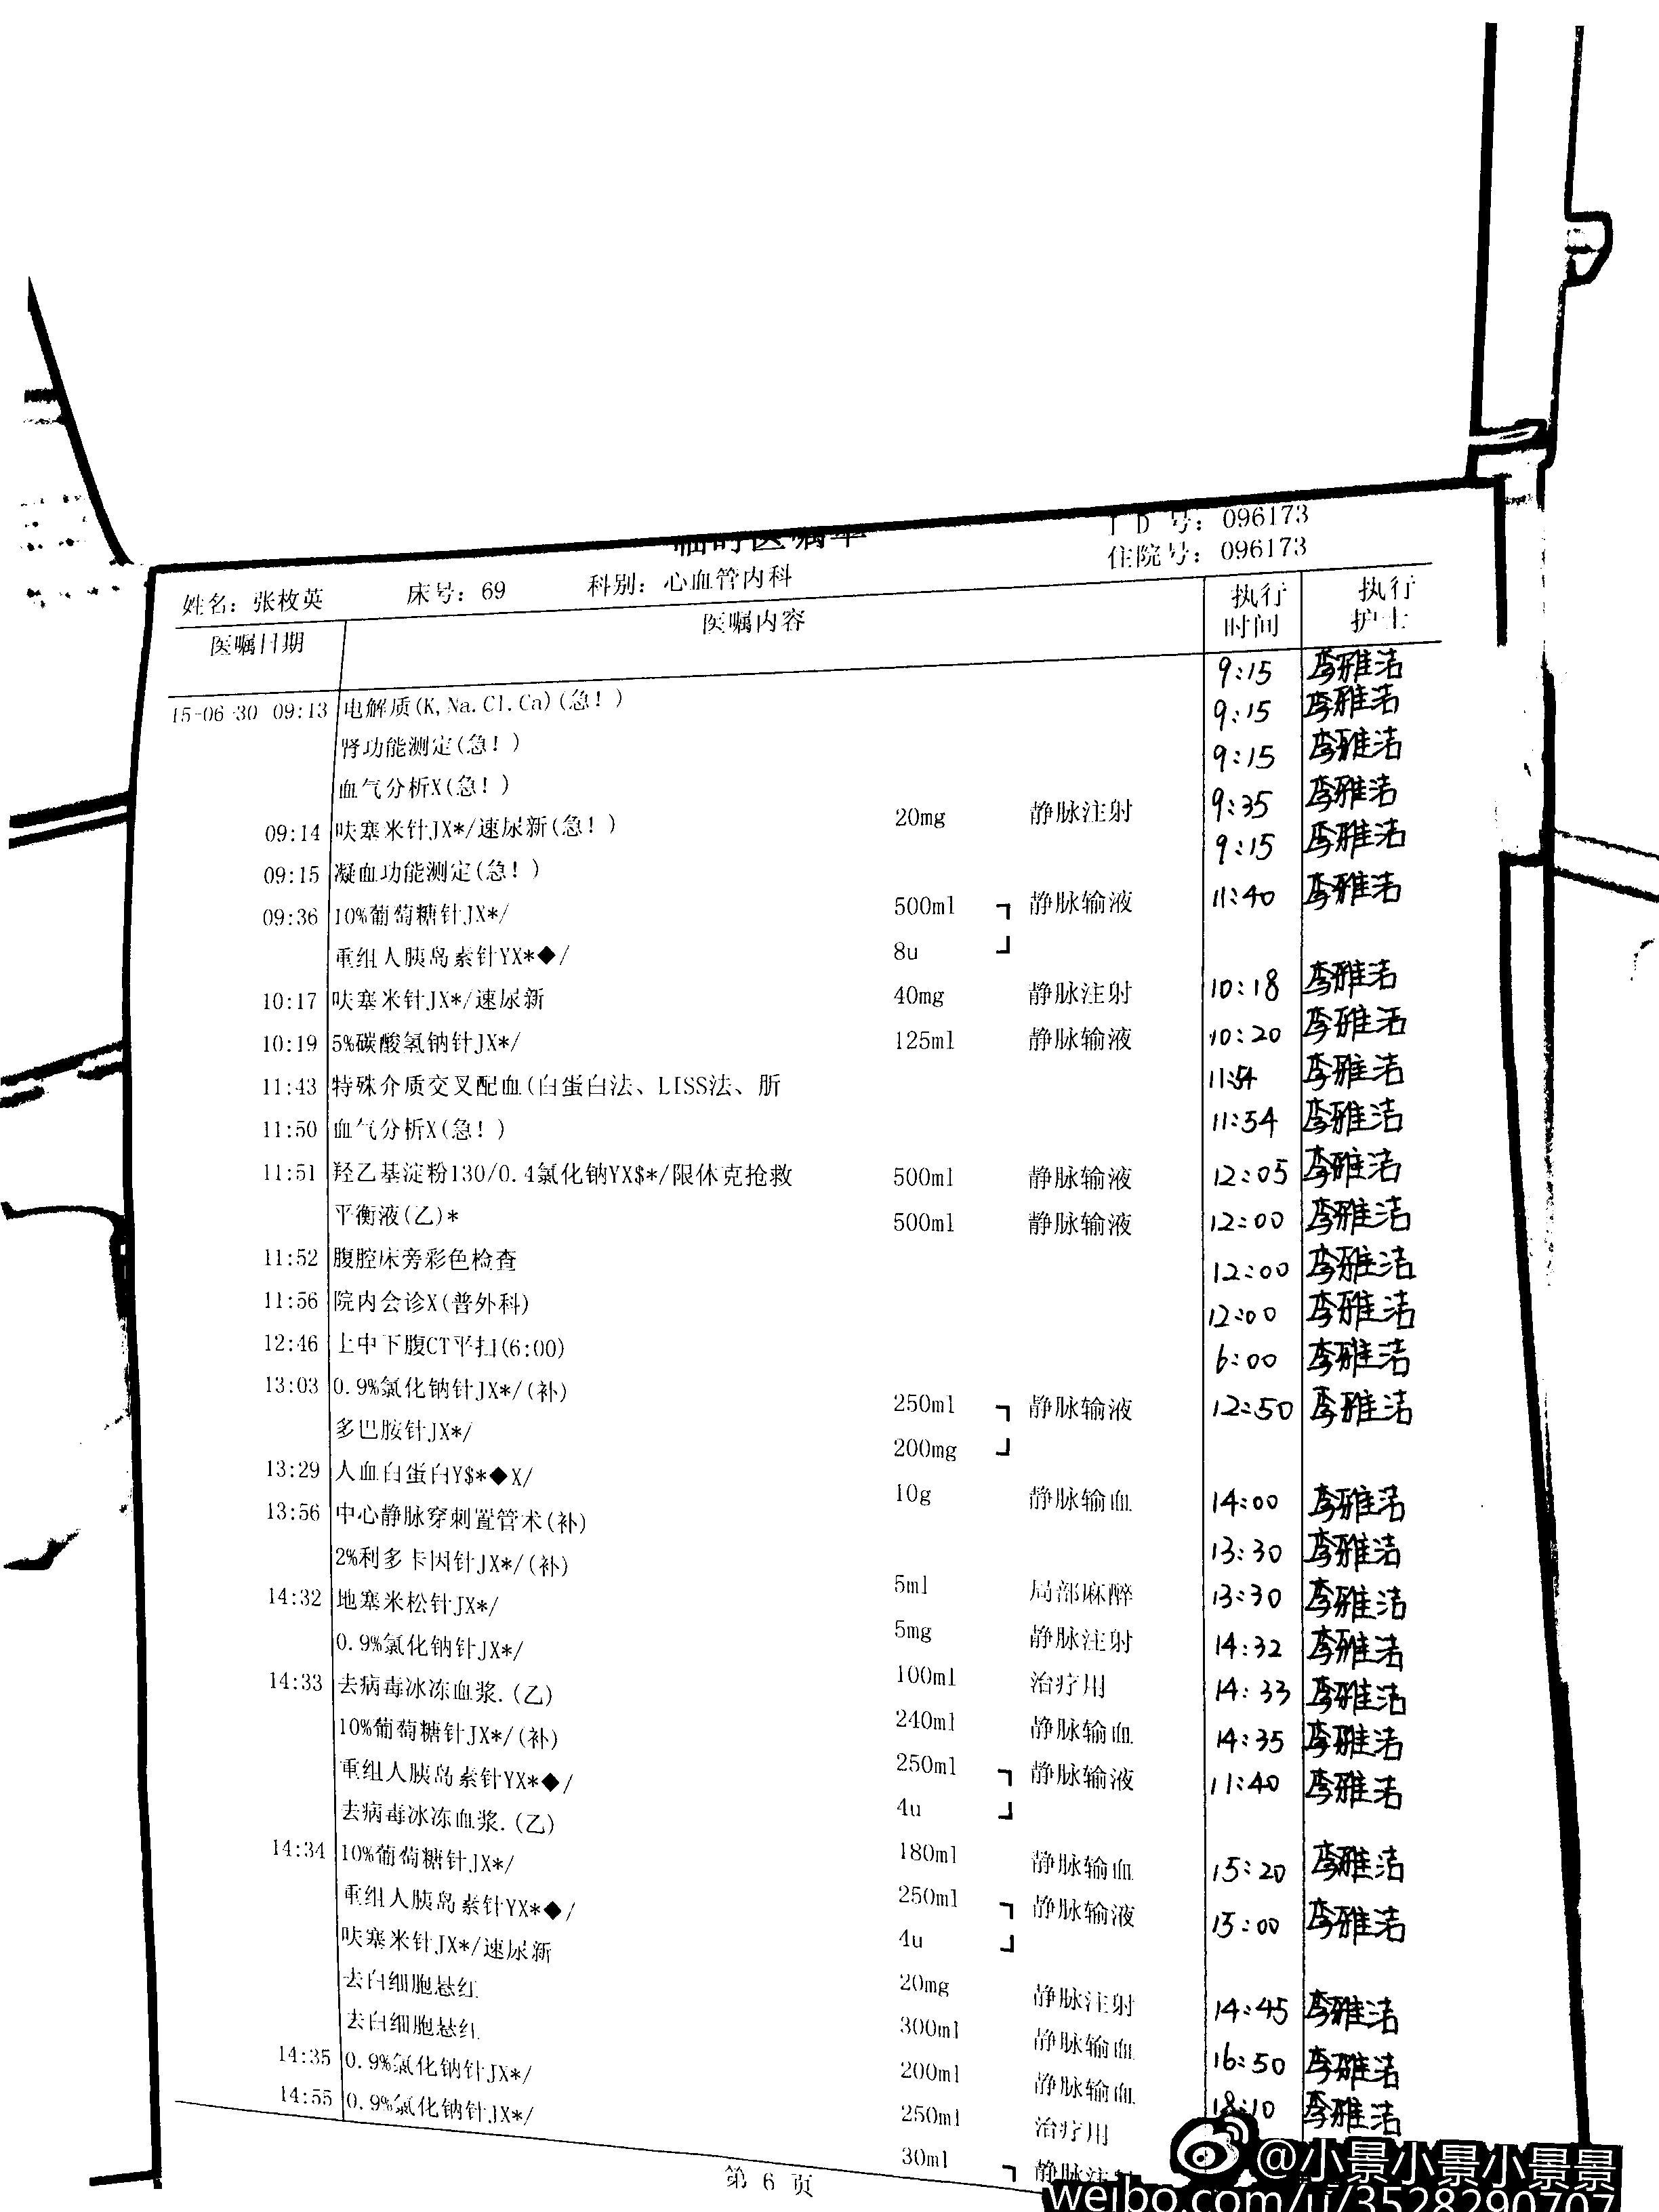 临时医嘱单
ID号: 096173
住院号: 096173
姓名: 张枚英 床号: 69 科别: 心血管内科
医嘱日期 医嘱内容 执行时间 执行护士
15-06-30 09:13 电解质(K,Na.Cl.Ca)(急!) 9:15 李雅洁
肾功能测定(急!) 9:15 李雅洁
血气分析X(急!) 9:15 李雅洁
09:14 呋塞米针JX*/速尿新(急!) 20mg 静脉注射 9:35 李雅洁
09:15 凝血功能测定(急!) 9:15 李雅洁
09:36 10%葡萄糖针JX*/ 500ml ┐ 静脉输液 11:40 李雅洁
重组人胰岛素针YX*◆/ 8u ┘
10:17 呋塞米针JX*/速尿新 40mg 静脉注射 10:18 李雅洁
10:19 5%碳酸氢钠针JX*/ 125ml 静脉输液 10:20 李雅洁
11:43 特殊介质交叉配血(白蛋白法、LISS法、胼 11:54 李雅洁
11:50 血气分析X(急!) 11:54 李雅洁
11:51 羟乙基淀粉130/0.4氯化钠YX$*/限休克抢救 500ml 静脉输液 12:05 李雅洁
平衡液(乙)* 500ml 静脉输液 12:00 李雅洁
11:52 腹腔床旁彩色检查 12:00 李雅洁
11:56 院内会诊X(普外科) 12:00 李雅洁
12:46 上中下腹CT平扫(6:00) 6:00 李雅洁
13:03 0.9%氯化钠针JX*/(补) 250ml ┐ 静脉输液 12:50 李雅洁
多巴胺针JX*/ 200mg ┘
13:29 人血白蛋白Y$*◆X/ 10g 静脉输血 14:00 李雅洁
13:56 中心静脉穿刺置管术(补) 13:30 李雅洁
2%利多卡因针JX*/(补) 5ml 局部麻醉 13:30 李雅洁
14:32 地塞米松针JX*/ 5mg 静脉注射 14:32 李雅洁
0.9%氯化钠针JX*/ 100ml 治疗用 14:33 李雅洁
14:33 去病毒冰冻血浆.(乙) 240ml 静脉输血 14:35 李雅洁
10%葡萄糖针JX*/(补) 250ml ┐ 静脉输液 11:40 李雅洁
重组人胰岛素针YX*◆/ 4u ┘
去病毒冰冻血浆.(乙) 180ml 静脉输血 15:20 李雅洁
14:34 10%葡萄糖针JX*/ 250ml ┐ 静脉输液 15:00 李雅洁
重组人胰岛素针YX*◆/ 4u ┘
呋塞米针JX*/速尿新 20mg 静脉注射 14:45 李雅洁
去白细胞悬红 300ml 静脉输血 16:50 李雅洁
去白细胞悬红 200ml 静脉输血 18:10 李雅洁
14:35 0.9%氯化钠针JX*/ 250ml 治疗用
14:55 0.9%氯化钠针JX*/ 30ml ┐ 静脉注射
第 6 页
@小景小景小景景
weibo.com/u/3528290707